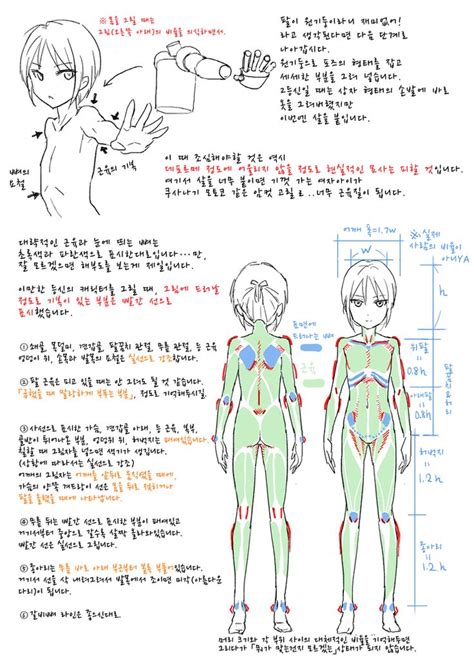 ※ 몸을 그릴 때는
그림(오른쪽 아래)의 비율을 의식하면서.
팔이 원기둥이라니 재미없어!
라고 생각된다면 다음 단계로
나아갑시다.
원기둥으로 포즈의 형태를 잡고
세세한 부분을 그려 넣습니다.
2등신일 때는 상자 형태의 손발에 바로
옷을 그려버렸지만
이번엔 살을 붙입니다.
뼈의
요철
근육의 기복
이 때 조심해야할 것은 역시
데포르메 정도에 어울리지 않을 정도로 현실적인 묘사는 피할 것입니다.
여기서 살을 너무 붙이면 기껏 가는 여자아이가
쿠사나기 모토코 같은 암컷 고릴ㄹ..너무 근육질이 됩니다.
대략적인 근육과 눈에 띄는 뼈는
초록색과 파란색으로 표시한대로입니다…만,
잘 모르겠으면 해부도를 보는게 제일입니다.
이만한 등신의 캐릭터를 그릴 때, 그림에 드러날
정도로 기복이 있는 부분은 빨간 선으로
표시했습니다.
※실제
사람의 비율이
아니YA
어깨 폭=1.7w
w
h
표면에
드러나는 뼈
근육
위팔
=
0.8h
아래팔
=
0.8h
허벅지
=
1.2h
종아리
=
1.2h
① 쇄골, 목덜미, 견갑골, 팔꿈치 관절, 무릎 관절, 등 근육
엉덩이 위, 손목과 발목의 요철은 실선으로 강조합니다.
② 팔 근육은 펴고 있을 때는 안 그려도 될 것 같습니다.
「굽혔을 때 말랑하게 부푸는 부분」, 정도로 기억해두시길.
③ 사선으로 표시한 가슴, 견갑골 아래, 등 근육, 복부,
골반이 튀어나온 부분, 엉덩이 위, 허벅지는 패여있습니다.
칠할 때 그림자를 넣으면 색기가 생깁니다.
(상황에 따라서는 실선으로 강조)
어깨의 그림자는 어깨를 앞뒤로 움직였을 때에,
가슴의 양쪽 겨드랑이 선은 몸을 뒤로 젖히거나
팔을 올렸을 때에 나타납니다.
④ 무릎 위는 빨간 선으로 표시한 부분이 패여있고
거기서부터 중앙으로 갈수록 살짝 올라와있습니다.
빨간 선은 실선으로 그립니다.
⑤ 종아리는 무릎 바로 아래 부근부터 불룩 부풀어있습니다.
거기서 선을 살 내려그려서 발목에서 조이면 미각(아름다운
다리)이 됩니다.
⑥ 갈비뼈 라인은 좋으신대로.
머리 크기와 각 부위 사이의 대체적인 비율을 기억해두면
그리다가 「뭐가 맞는건지 모르겠는」상태가 되지 않습니다.